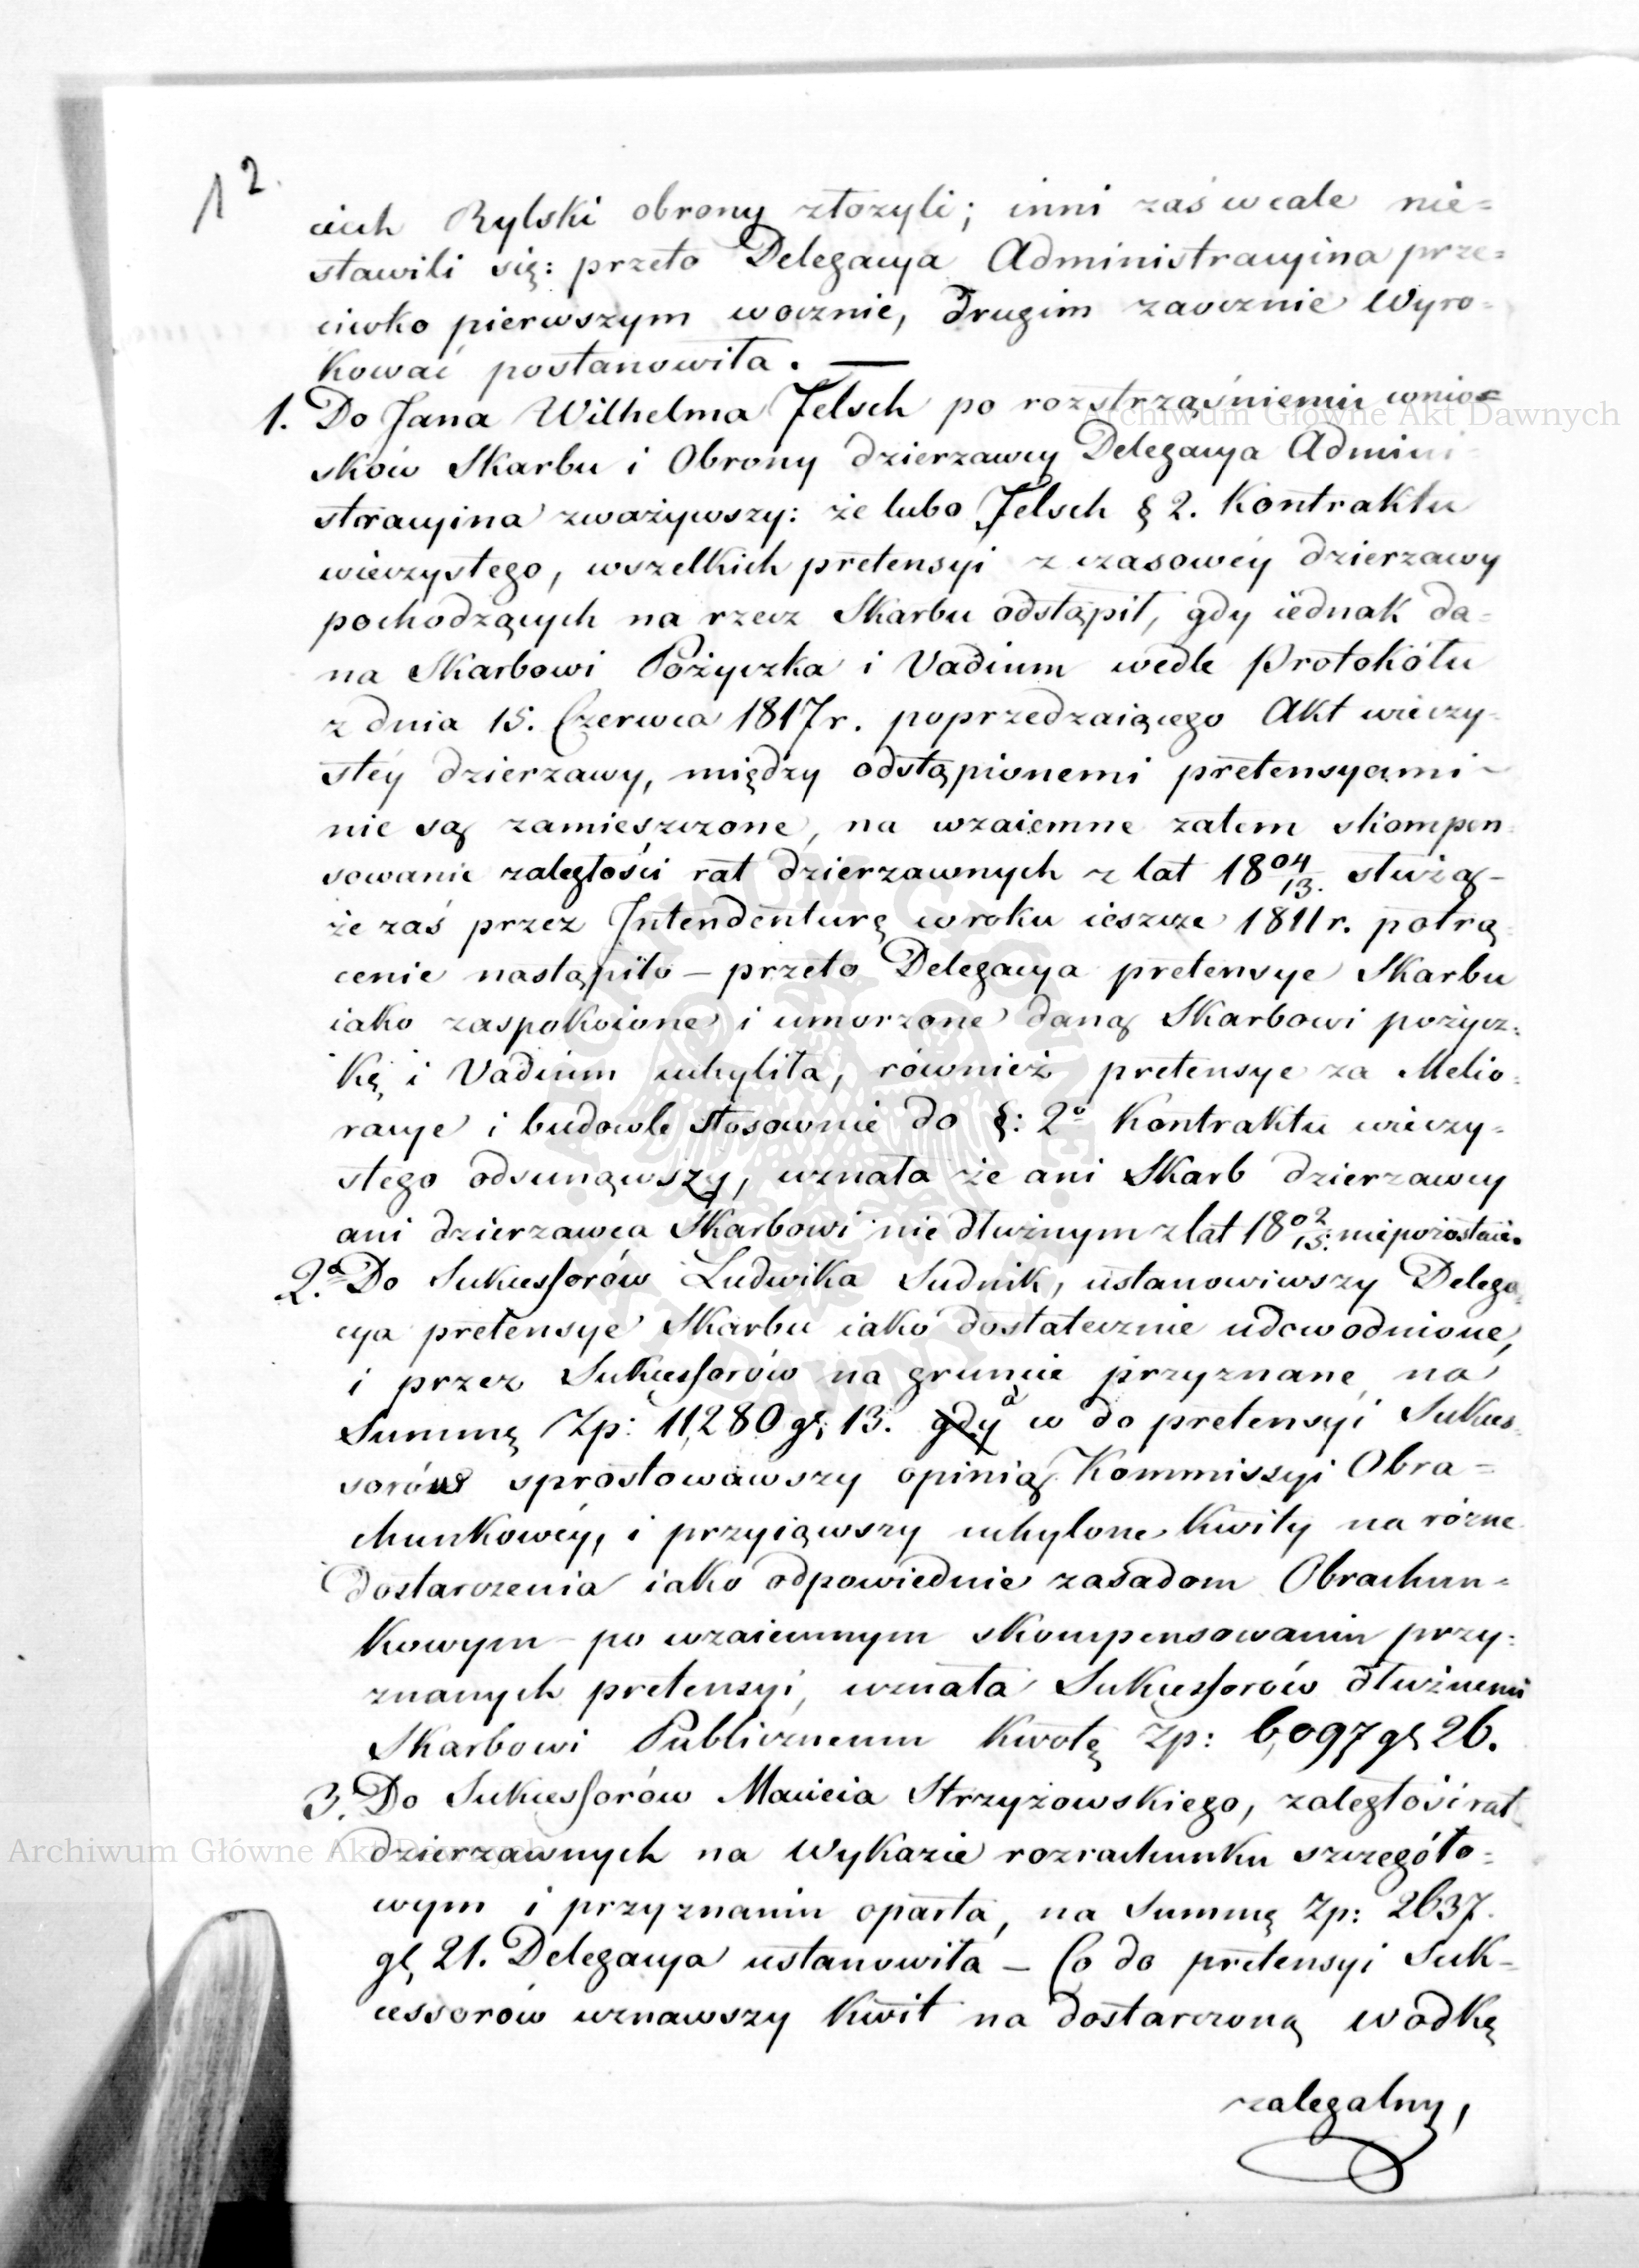 12.
ciech Rylski obrony złożyli; inni zaś wcale nie=
stawili się: przeto Delegacya Administracyina prze=
ciwko pierwszym wocznie, drugim zaocznie Wyro=
kować postanowiła. —
1. Do Jana Wilhelma Jelsch po rozstrząśnieniu wnio=
sków Skarbu i Obrony dzierzawcy Delegacya Admini=
stracyina zważywszy: że lubo Jelsch § 2. Kontraktu
wieczystego, wszelkich pretensyi z czasowéy dzierzawy
pochodzących na rzecz Skarbu odstąpił, gdy iednak da=
na Skarbowi Pożyczka i Vadium wedle Protokółu
z dnia 15. Czerwca 1817 r. poprzedzaiącego Akt wieczy=
stéy dzierzawy, między odstąpionemi pretensyami
nie są zamieszczone, na wzaiemne zatem skompen=
sowanie zaległości rat dzierzawnych z lat 18 04/13. służą —
że zaś przez Intendenturę w roku ieszcze 1811 r. potrą=
cenie nastąpiło — przeto Delegacya pretensye Skarbu
iako zaspokoione i umorzone daną Skarbowi pożycz=
kę i Vadium uchyliła, również pretensye za Melio=
racye i budowle stosownie do §: 2º Kontraktu wieczy=
stego odsunąwszy, uznała że ani Skarb dzierzawcy
ani dzierzawca Skarbowi nic dłużnym z lat 18 02/15. niepozostaie.
2.º Do Sukcessorów Ludwika Sudnik, ustanowiwszy Delega=
cya pretensye Skarbu iako dostatecznie udowodnione,
i przez Sukcessorów na gruncie przyznane, na
Summę Zp: 11,280 gs; 13. gdy a w do pretensyi Sukces=
sorów sprostowawszy opinią Kommissyi Obra=
chunkowéy, i przyiąwszy uchylone Kwity na rózne
dostarczenia iako odpowiednie zasadom Obrachun=
kowym — po wzaiemnym skompensowaniu przy=
znanych pretensyi, uznała Sukcessorów dłużnemi
Skarbowi Publicznemu Kwotę Zp: 6,097 gs 26.
3. Do Sukcessorów Macieia Strzyżowskiego, zaległości rat
dzierzawnych na Wykazie rozrachunku szczegóło=
wym i przyznaniu oparta, na Summę Zp: 2637.
gs 21. Delegacya ustanowiła — Co do pretensyi Suk=
cessorów uznawszy Kwit na dostarczoną wodkę
zalegalny,
Archiwum Główne Akt Dawnych
Archiwum Główne Akt Dawnych